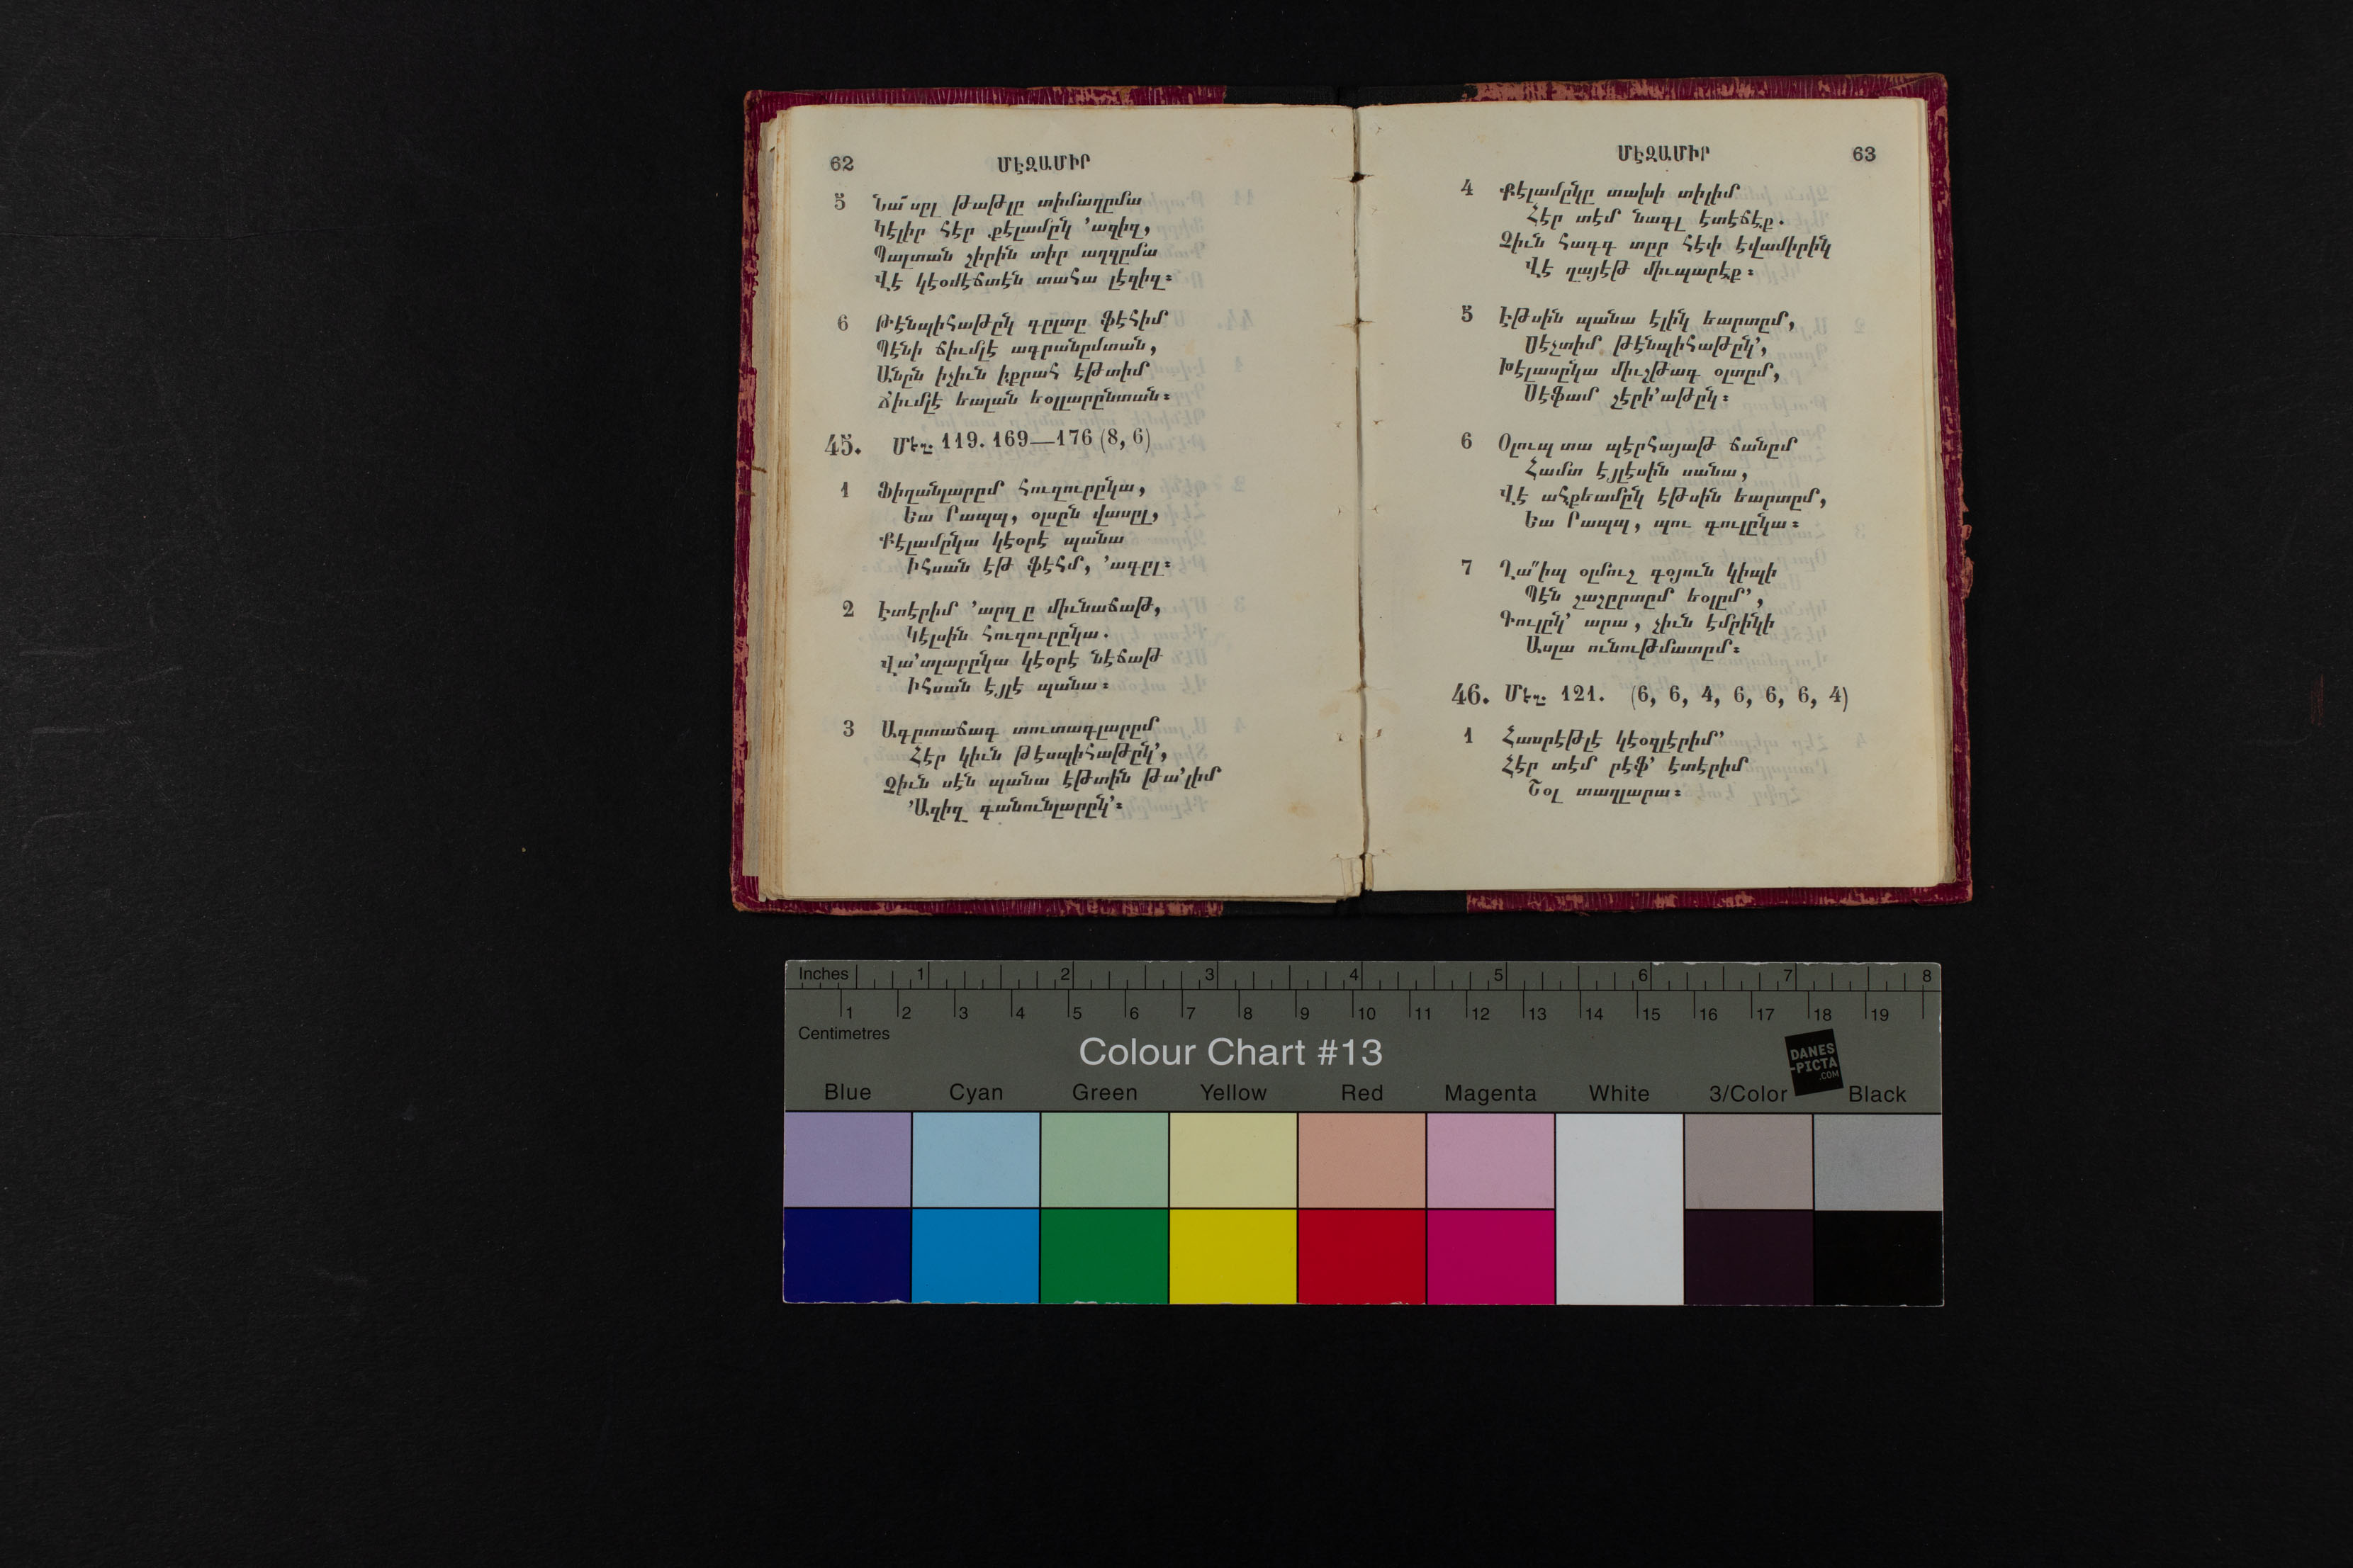 62 ՄԷԶԱՄԻՐ
5 Նա՛՛ սըլ թաթլը տիմաղըմա
Կէլիր հէր քէլամըկ ՚ազիզ,
Պալտան շիրին տիր աղզըմա
Վէ կէօմէճտէն տահա լէզիզ։
6 Թէնպիհաթըկ գըլտը ֆէհիմ
Պէնի ճիւմլէ ագրանըմտան,
Անըն իչիւն իքրահ էթտիմ
Ճիւմլէ եալան եօլլարընտան։
45. Մեզ. 119. 169—176 (8, 6)
1 Ֆիղանլարըմ հուզուրըկա,
Եա Րապպ, օլսըն վասըլ,
Քէլամըկա կէօրէ պանա
Իհսան էթ ֆէհմ, ՚ագըլ։
2 Էտէրիմ ՚արզ ը միւնաճաթ,
Կէլսին հուզուրըկա.
Վա՚տլարըկա կէօրէ նէճաթ
Իհսան էյլէ պանա։
3 Ագըտաճագ տուտագլարըմ
Հէր կիւն թէսպիհաթըկ՚,
Չիւն սէն պանա էթտին թա՚լիմ
՚Ազիզ գանունլարըկ՚։
ՄԷԶԱՄԻՐ 63
4 Քէլամըկը տախի տիլիմ
Հէր տէմ նագլ էտէճէք.
Չիւն հագգ տըր հէփ էվամիրիկ
Վէ ղայէթ միւպարէք։
5 Էթսին պանա էլիկ եարտըմ,
Սէչտիմ թէնպիհաթըկ՚,
Խէլասըկա միւշթագ օլտըմ,
Սէֆամ շէրի՚աթըկ։
6 Օլուպ տա պէրհայաթ ճանըմ
Համտ էյլէսին սանա,
Վէ ահքեամըկ էթսին եարտըմ,
Եա Րապպ, պու գուլըկա։
7 Ղա՛՛իպ օլմուշ գօյուն կիպի
Պէն շաշըրտըմ եօլըմ՚,
Գուլըկ՚ արա, չիւն էմրիկի
Ասլա ունութմատըմ։
46. Մեզ. 121. (6, 6, 4, 6, 6, 6, 4)
1 Հասրէթլէ կէօզլէրիմ՚
Հէր տէմ րէֆ՚ էտէրիմ
Շօլ տաղլարա։
Inches 1 2 3 4 5 6 7 8
1 2 3 4 5 6 7 8 9 10 11 12 13 14 15 16 17 18 19
Centimetres
Colour Chart #13
DANES
-PICTA
.COM
Blue Cyan Green Yellow Red Magenta White 3/Color Black